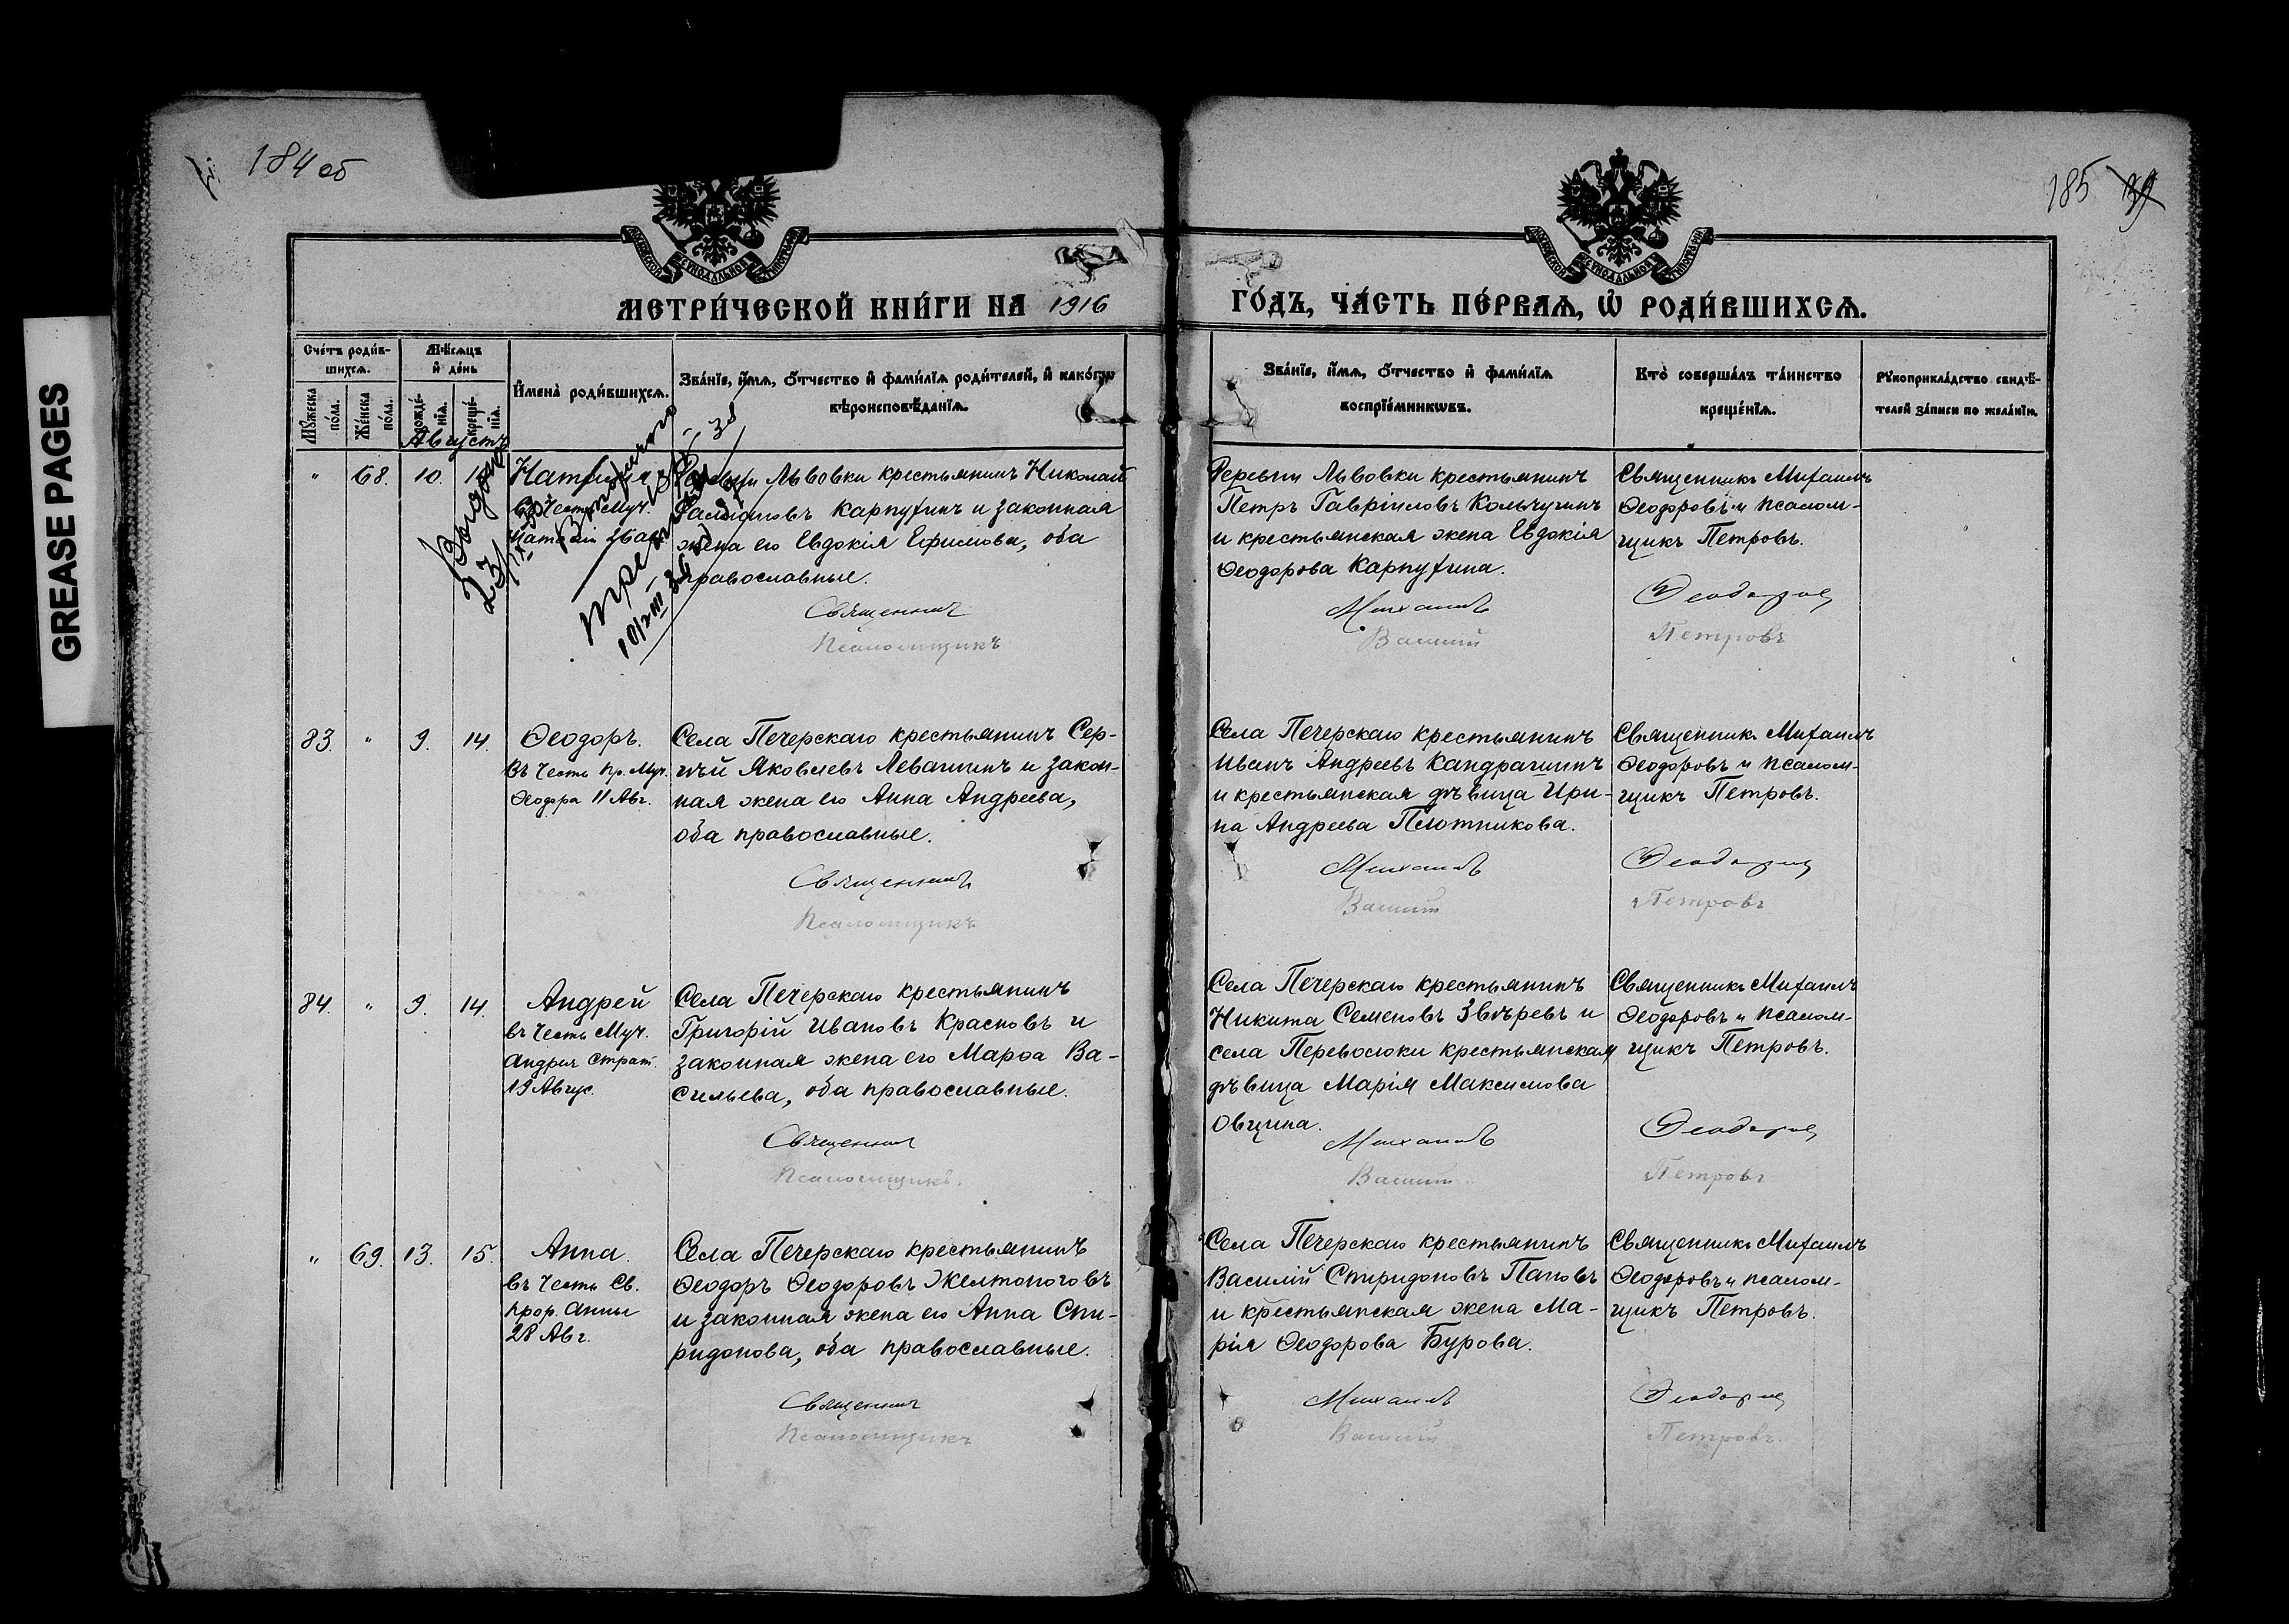 184 об
185 39
GREASE PAGES
МОСКОВСКОЙ СѴНОДАЛЬНОЙ ТИПОГРАФІИ
МОСКОВСКОЙ СѴНОДАЛЬНОЙ ТИПОГРАФІИ
МЕТРИ́ЧЕСКОЙ КНИ́ГИ НА 1916
ГО́ДЪ, ЧА́СТЬ ПЕ́РВАѦ, Ѽ РОДИ́ВШИХСѦ.
Сче́тъ роди́в-
шихсѧ.
Мꙋ́жеска по́ла.
Же́нска по́ла.
Мѣ́сѧцъ
и҆ де́нь
рожде́-
нїѧ.
креще́-
нїѧ.
И҆мена̀ роди́вшихсѧ.
Зва́нїе, и҆́мѧ, ѻ҆́тчество и҆ фами́лїѧ роди́телей, и҆ како́гѡ
вѣроисповѣ́данїѧ.
Зва́нїе, и҆́мѧ, ѻ҆́тчество и҆ фами́лїѧ
воспрїе́мникѡвъ.
Кто̀ соверша́лъ та́инство
креще́нїѧ.
Рꙋкоприкла́дство свидѣ́-
телей за́писи по жела́нїю.
Августъ
" 68. 10.
Наталія
въ честь Муч.
Деревни Львовки крестьянинъ Николай
Карпухинъ и законная
жена его Евдокія Ефимова, оба
православные.
Священникъ
Псаломщикъ
Выдана
23/IX
Вторично
10/VIII
Деревни Львовки крестьянинъ
Петръ Гавріиловъ Кольчугинъ
и крестьянская жена Евдокія
Ѳеодорова Карпухина.
Михаилъ
Василій
Священникъ Михаилъ
Ѳеодоровъ и псалом-
щикъ Петровъ.
Ѳеодоровъ
Петровъ
83. " 9. 14.
Ѳеодоръ.
въ честь пр. Муч.
Ѳеодора 11 Авг.
Села Печерскаго крестьянинъ Сер-
гѣй Яковлевъ Левашинъ и закон-
ная жена его Анна Андреева,
оба православные.
Священникъ
Псаломщикъ
Села Печерскаго крестьянинъ
Иванъ Андреевъ Кандрашинъ
и крестьянская дѣвица Ири-
на Андреева Плотникова.
Михаилъ
Василій
Священникъ Михаилъ
Ѳеодоровъ и псалом-
щикъ Петровъ.
Ѳеодоровъ
Петровъ
84. " 9. 14.
Андрей
въ честь Муч.
Андрея Страт.
19 Авгус.
Села Печерскаго крестьянинъ
Григорій Ивановъ Красновъ и
законная жена его Марѳа Ва-
сильева, оба православные.
Священникъ
Псаломщикъ.
Села Печерскаго крестьянинъ
Никита Семеновъ Звѣревъ и
села Переволоки крестьянская
дѣвица Марія Максимова
Овцина.
Михаилъ
Василій
Священникъ Михаилъ
Ѳеодоровъ и псалом-
щикъ Петровъ.
Ѳеодоровъ
Петровъ
" 69. 13. 15.
Анна.
въ честь Св.
прор. Анны
28 Авг.
Села Печерскаго крестьянинъ
Ѳеодоръ Ѳеодоровъ Желтоноговъ
и законная жена его Анна Спи-
ридонова, оба православные.
Священникъ
Псаломщикъ
Села Печерскаго крестьянинъ
Василій Спиридоновъ Пановъ
и крестьянская жена Ма-
рія Ѳеодорова Бурова.
Михаилъ
Василій
Священникъ Михаилъ
Ѳеодоровъ и псалом-
щикъ Петровъ.
Ѳеодоровъ
Петровъ.